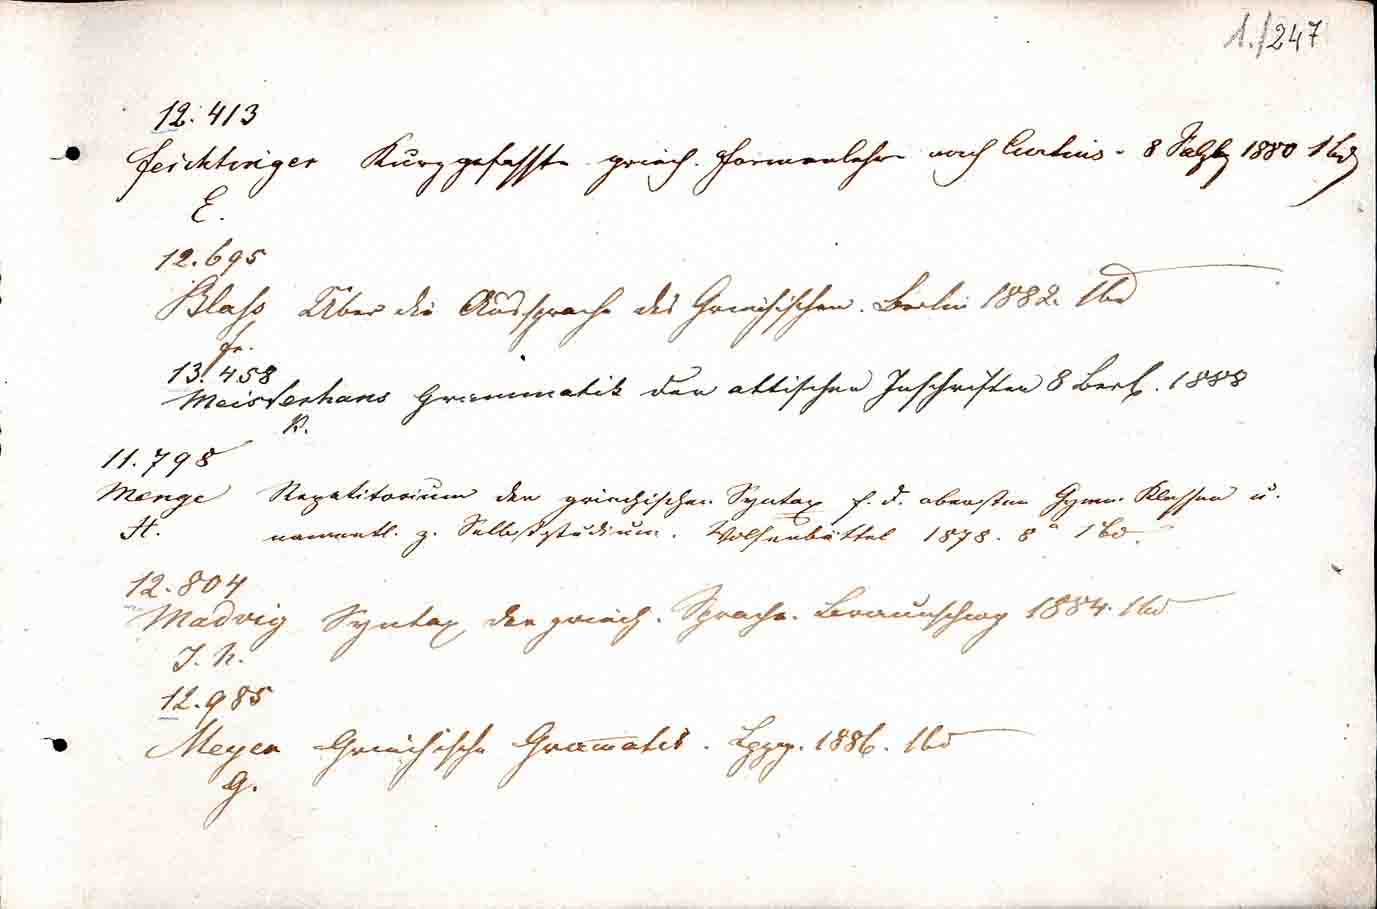 1./247
12.413
Feichtinger Kurzgefasste griech. Formenlehre nach Curtius. 8 Salzbg 1880 1 Bd
E.
12.695
Blass Über die Aussprache des Griechischen. Berlin 1882. 1 Bd
Fr.
13.458
Meisterhans Grammatik der attischen Inschriften 8 Berl. 1888
K.
11.798
Menge Repetitorium der griechischen Syntax f. d. obersten Gymn. Klassen u.
H. namentl. z. Selbststudium. Wolfenbüttel 1878. 8° 1 Bd.
12.804
Madvig Syntax der griech. Sprache. Braunschwg 1884. 1 Bd
J. N.
12.985
Meyer Griechische Gram̅atik. Lpzg. 1886. 1 Bd
G.